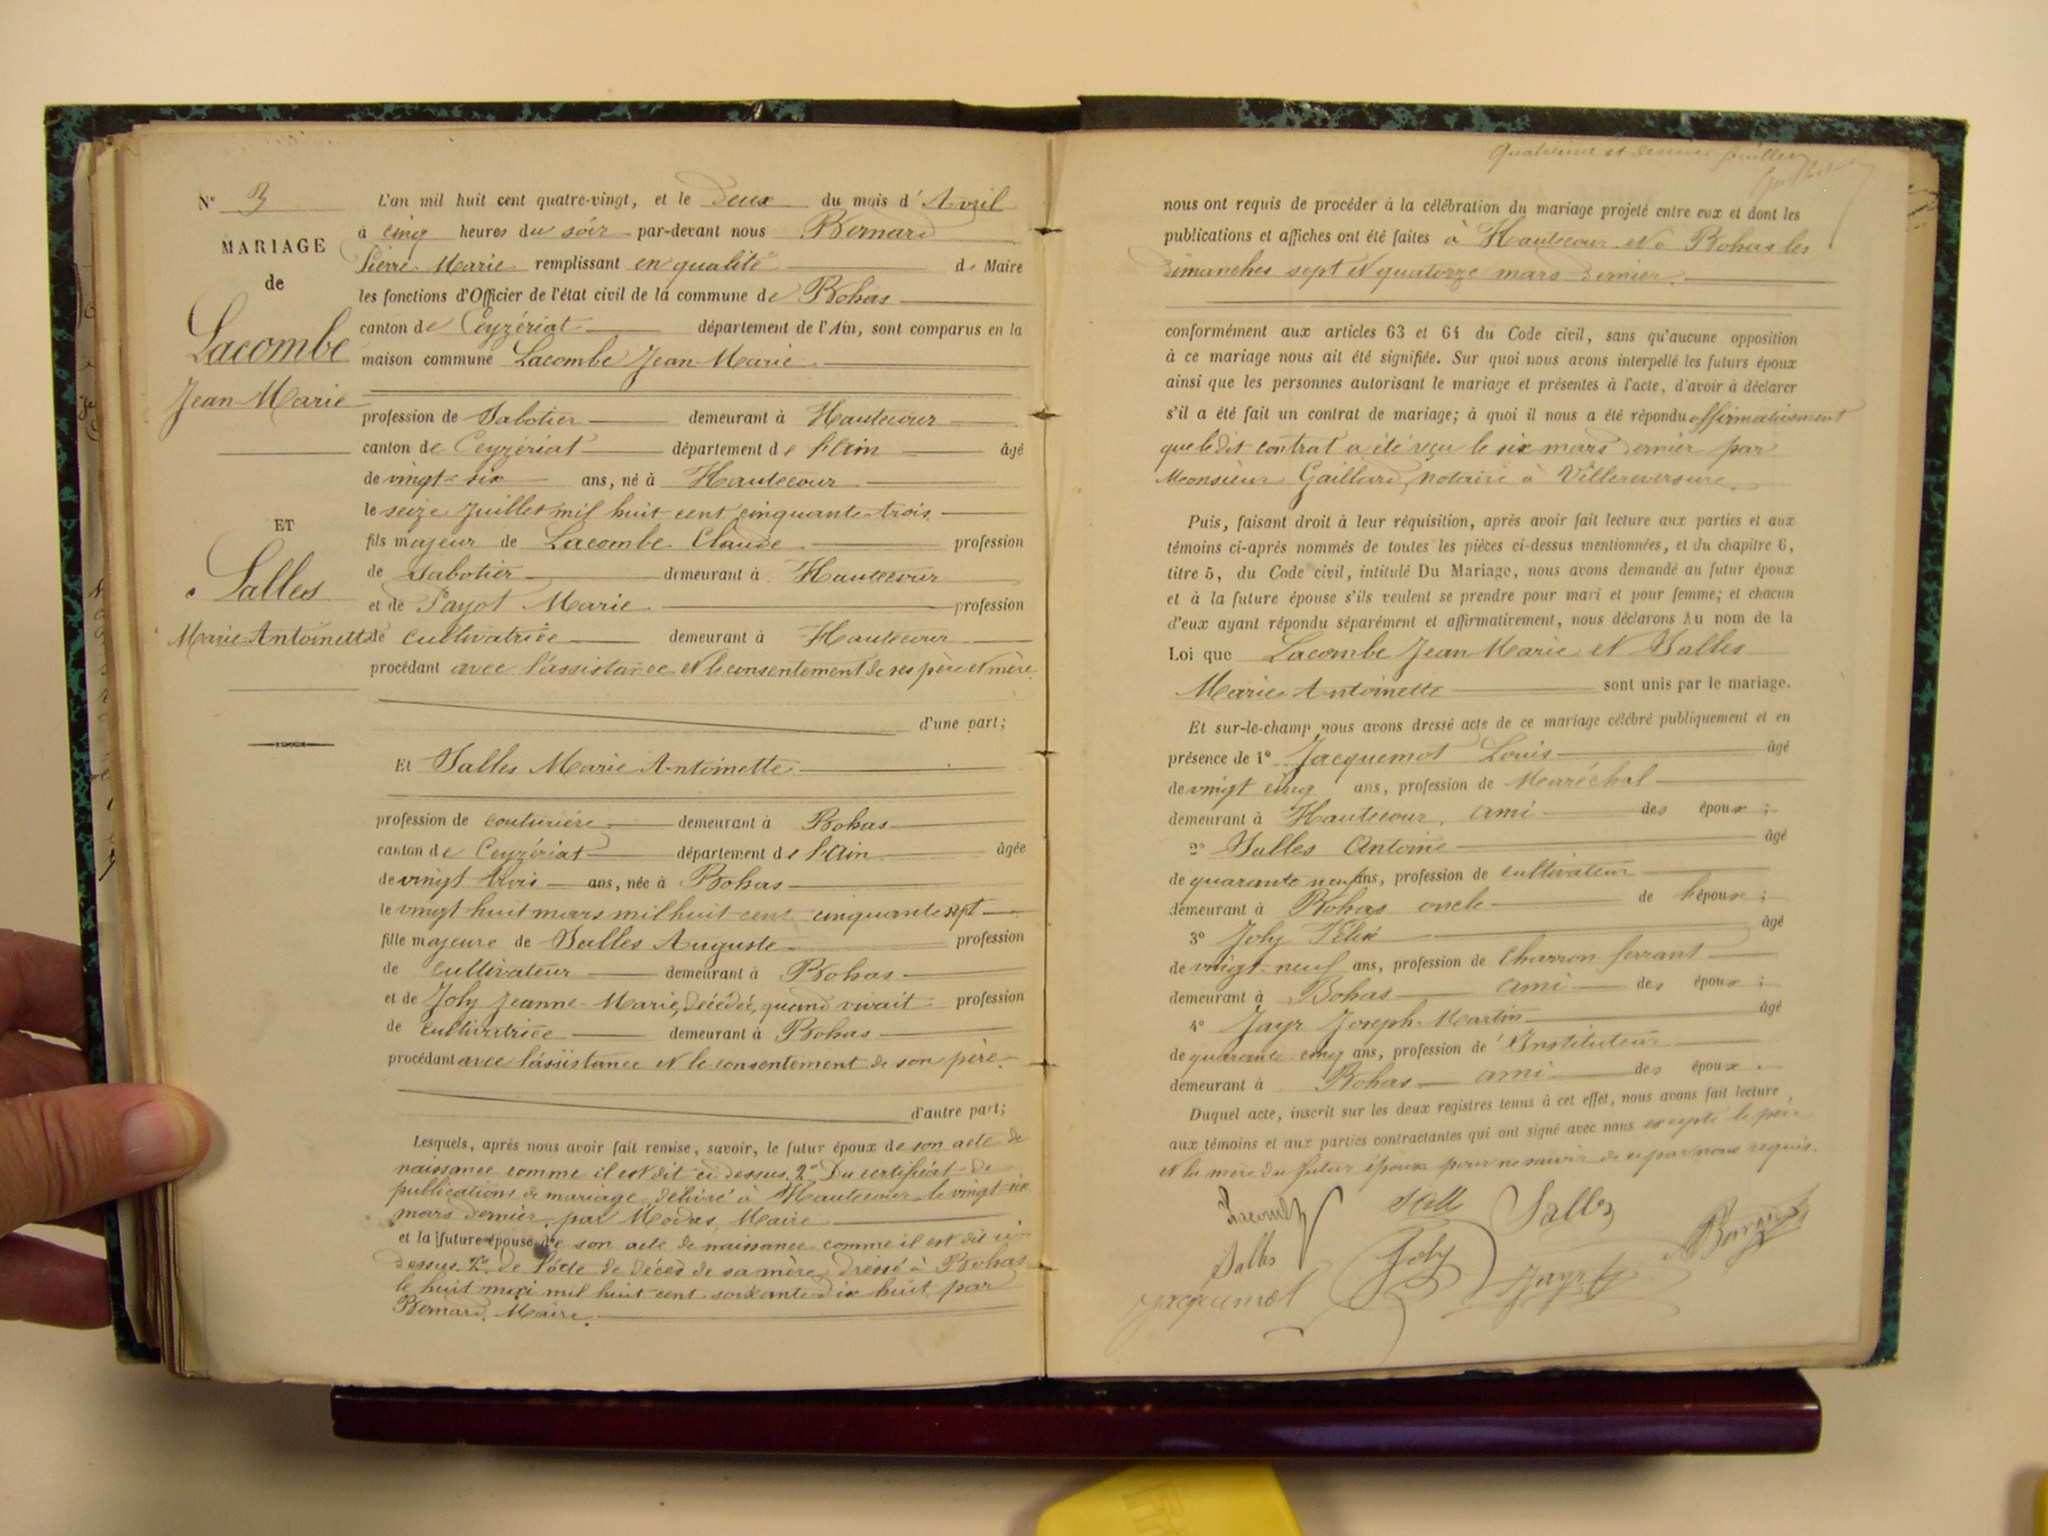 N° 3
MARIAGE
de
Lacombe
Jean Marie
ET
Salles
Marie Antoinette
L'an mil huit cent quatre-vingt, et le deux du mois d'Avril
à cinq heures du soir par-devant nous Bernard
Pierre Marie remplissant en qualité de Maire
les fonctions d'Officier de l'état civil de la commune de Bohas
canton de Ceyzériat département de l'Ain, sont comparus en la
maison commune Lacombe Jean Marie
profession de Sabotier demeurant à Hautecour
canton de Ceyzériat département de l'Ain âgé
de vingt-six ans, né à Hautecour
le seize Juillet mil huit cent cinquante-trois
fils majeur de Lacombe Claude profession
de Sabotier demeurant à Hautecour
et de Payot Marie profession
de cultivatrice demeurant à Hautecour
procédant avec l'assistance et le consentement de ses père et mère
d'une part;
Et Salles Marie Antoinette
profession de couturière demeurant à Bohas
canton de Ceyzériat département de l'Ain âgée
de vingt trois ans, née à Bohas
le vingt huit mars mil huit cent cinquante sept
fille majeure de Salles Auguste profession
de cultivateur demeurant à Bohas
et de Joly Jeanne-Marie, décédée, quand vivait profession
de cultivatrice demeurant à Bohas
procédant avec l'assistance et le consentement de son père
d'autre part;
Lesquels, après nous avoir fait remise, savoir, le futur époux de son acte de
naissance comme il est dit ci dessus. 2° Du certificat de
publications de mariage, délivré à Hautecour le vingt-six
mars dernier, par Maire
et la future épouse de son acte de naissance comme il est dit ci-
dessus. 2° de l'acte de décès de sa mère, dressé à Bohas
le huit mai mil huit cent soixante dix huit par
Bernard, Maire.
Quatrième et dernier feuillet
nous ont requis de procéder à la célébration du mariage projeté entre eux et dont les
publications et affiches ont été faites à Hautecour et à Bohas les
dimanches sept et quatorze mars dernier.
conformément aux articles 63 et 64 du Code civil, sans qu'aucune opposition
à ce mariage nous ait été signifiée. Sur quoi nous avons interpellé les futurs époux
ainsi que les personnes autorisant le mariage et présentes à l'acte, d'avoir à déclarer
s'il a été fait un contrat de mariage; à quoi il nous a été répondu affirmativement
que le dit contrat a été reçu le six mars dernier par
Monsieur Gaillard, notaire à Villereversure.
Puis, faisant droit à leur réquisition, après avoir fait lecture aux parties et aux
témoins ci-après nommés de toutes les pièces ci-dessus mentionnées, et du chapitre 6,
titre 5, du Code civil, intitulé Du Mariage, nous avons demandé au futur époux
et à la future épouse s'ils veulent se prendre pour mari et pour femme; et chacun
d'eux ayant répondu séparément et affirmativement, nous déclarons Au nom de la
Loi que Lacombe Jean Marie et Salles
Marie Antoinette sont unis par le mariage.
Et sur-le-champ nous avons dressé acte de ce mariage célébré publiquement et en
présence de 1° Jacquemot Louis âgé
de vingt cinq ans, profession de Maréchal
demeurant à Hautecour, ami des époux;
2° Salles Antoine âgé
de quarante neuf ans, profession de cultivateur
demeurant à Bohas oncle de l'épouse;
3° Joly Félix âgé
de vingt-neuf ans, profession de Charron ferrant
demeurant à Bohas ami des époux;
4° Jayr Joseph-Martin âgé
de quarante cinq ans, profession d'Instituteur
demeurant à Bohas ami des époux.
Duquel acte, inscrit sur les deux registres tenus à cet effet, nous avons fait lecture,
aux témoins et aux parties contractantes qui ont signé avec nous excepté le père
et la mère du futur époux pour ne savoir de ce par nous requis.
Lacombe Salles
Salles Joly Jayr
Jacquemot